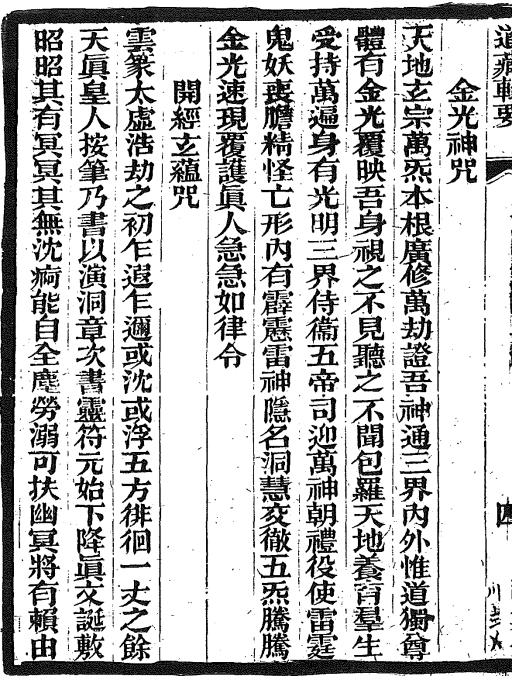 道藏輯要
金光神咒
天地玄宗萬炁本根廣修萬劫證吾神通三界內外惟道獨尊
體有金光覆映吾身視之不見聽之不聞包羅天地養育羣生
受持萬遍身有光明三界侍衞五帝司迎萬神朝禮役使雷霆
鬼妖喪膽精怪亡形內有霹靂雷神隱名洞慧交徹五炁騰騰
金光速現覆護眞人急急如律令
開經玄蘊咒
雲篆太虛浩劫之初乍遐乍邇或沈或浮五方徘徊一丈之餘
天眞皇人按筆乃書以演洞章次書靈符元始下降眞文誕敷
昭昭其有冥冥其無沈痾能自全塵勞溺可扶幽冥將有賴由